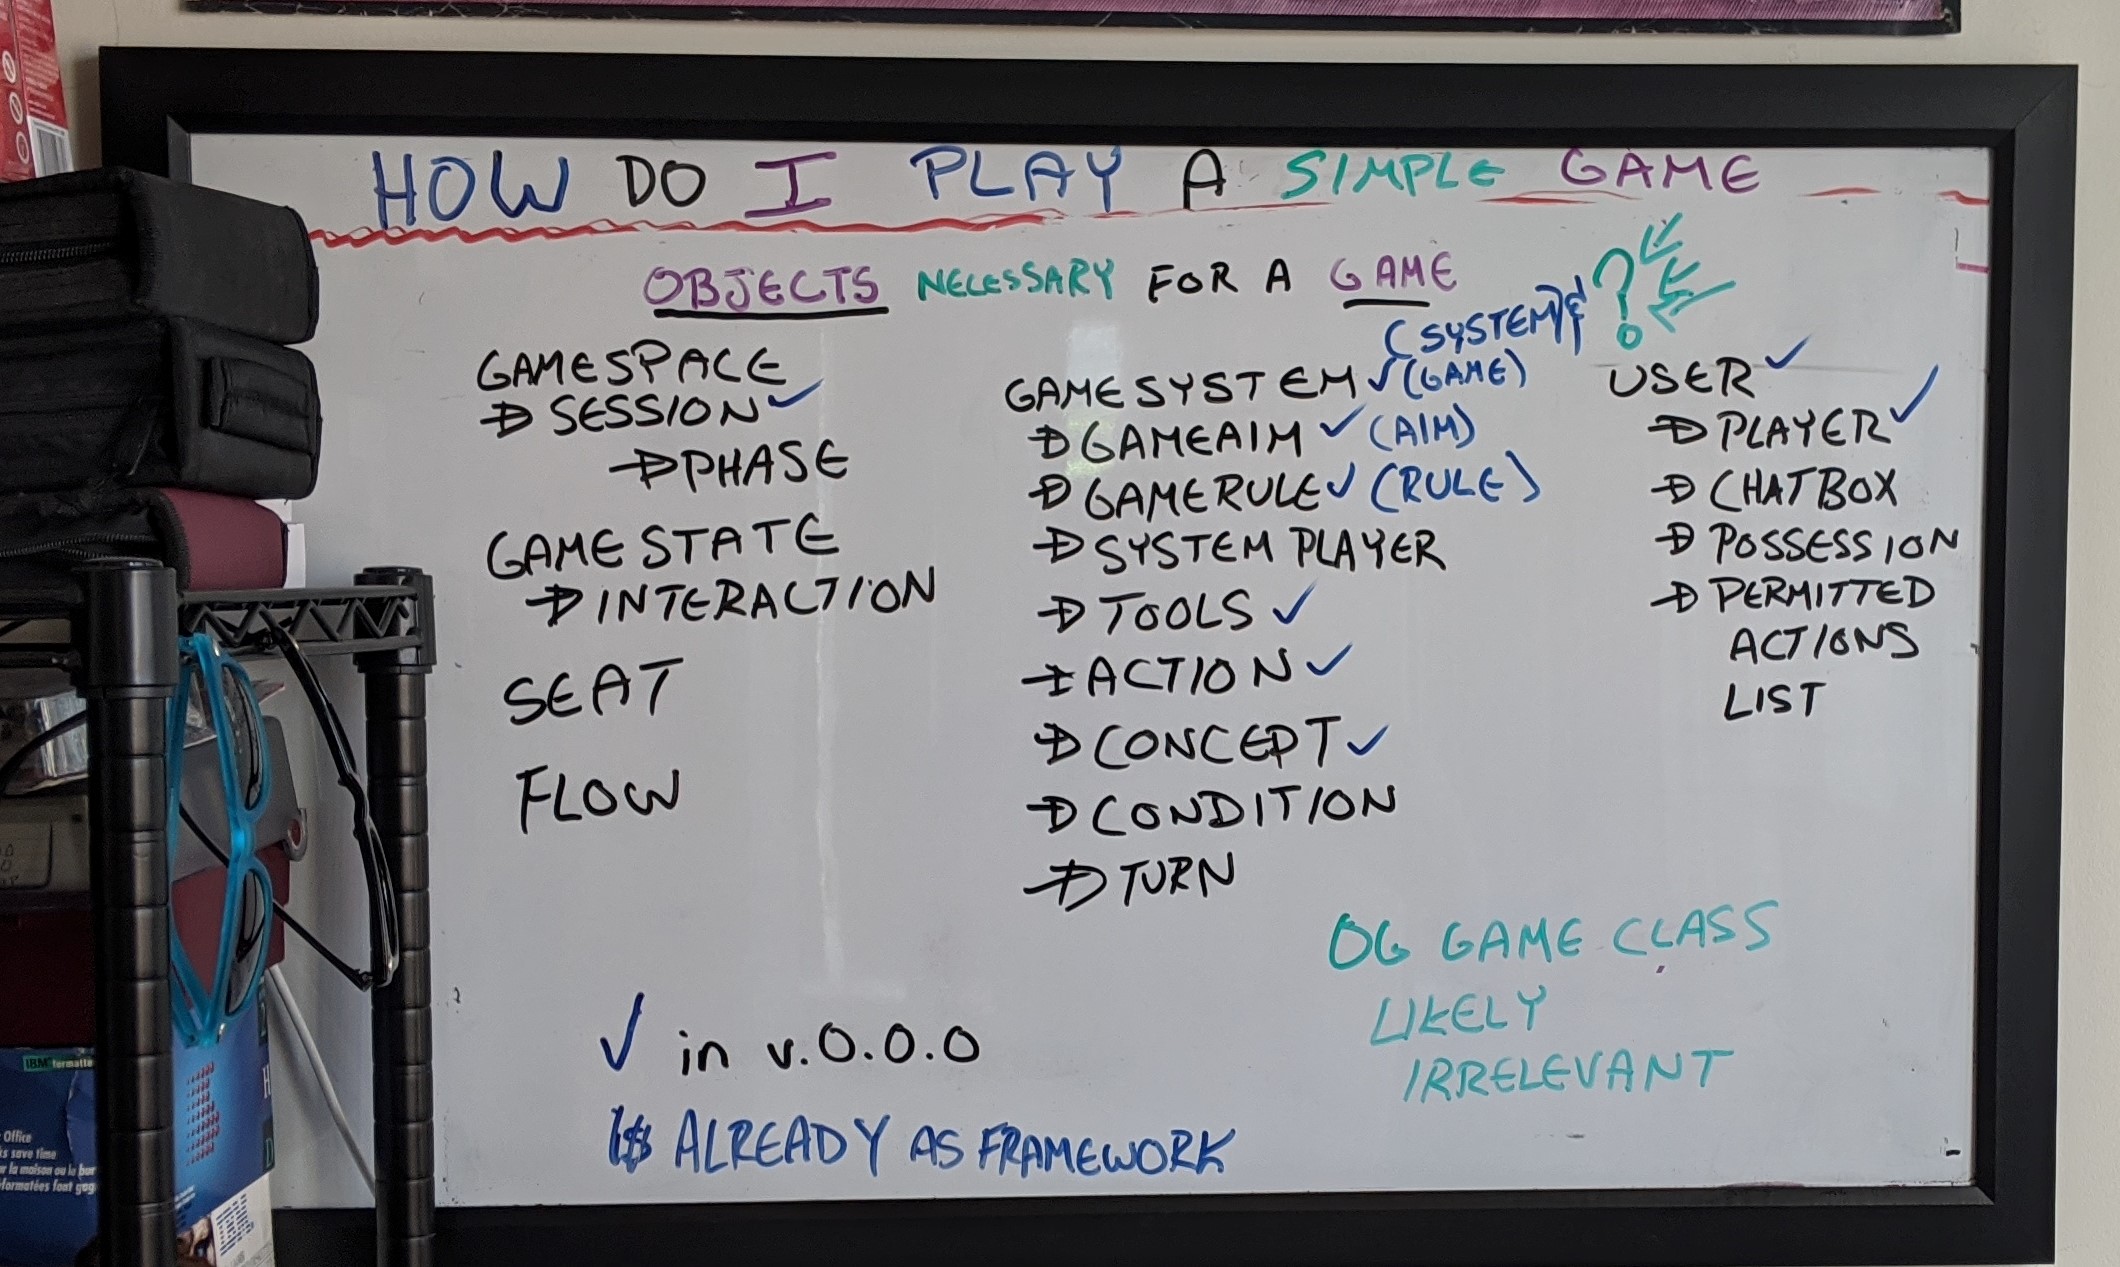 HOW DO I PLAY A SIMPLE GAME
OBJECTS NECESSARY FOR A GAME
?
GAMESPACE
→ SESSION ✓
→ PHASE
GAME STATE
→ INTERACTION
SEAT
FLOW
(SYSTEM)
GAMESYSTEM ✓ (GAME)
→ GAMEAIM ✓ (AIM)
→ GAMERULE ✓ (RULE)
→ SYSTEM PLAYER
→ TOOLS ✓
→ ACTION ✓
→ CONCEPT ✓
→ CONDITION
→ TURN
USER ✓
→ PLAYER ✓
→ CHATBOX
→ POSSESSION
→ PERMITTED
ACTIONS
LIST
OG GAME CLASS
LIKELY
IRRELEVANT
✓ in v.0.0.0
ALREADY AS FRAMEWORK
IBM formatte
Office
s save time
r la maison ou le bur
formatées font gag
IBM